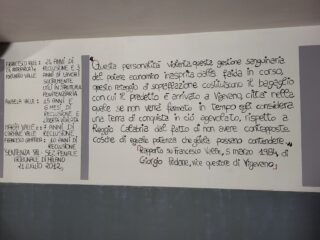 FRANCESCO VALLE: 24 ANNI DI
RECLUSIONE E 3
ANNI DI LAVORI
FORTUNATO VALLE
PENITENZIARIA
ANGELA VALLE:
E 6
MESI DI
RECLUSIONE E
LIBERTÀ VIGILATA
MARIA VALLE E
CARMINE VALLE:
7 ANNI DI
RECLUSIONE
ANNI DI
RECLUSIONE
SENTENZA
SEZ. PENALE
TRIBUNALE DI MILANO
LUGLIO 2012,
Questa personalità violenta, questa gestione sanguinaria
del potere economico inasprita dalla faida in corso,
questo retaggio di sopraffazione costituisce il bagaglio
con cui il predetto è arrivato a Vigevano, città nella
quale se non verrà fermato in tempo egli considera
una terra di conquista in ciò agevolato, rispetto a
Reggio Calabria dal fatto di non avere contrapposte
cosche di eguale potenza che gliela possano contendere
Rapporto su Francesco Valle, 5 marzo 1984, di
Giorgio Pedone, vice questore di Vigevano,